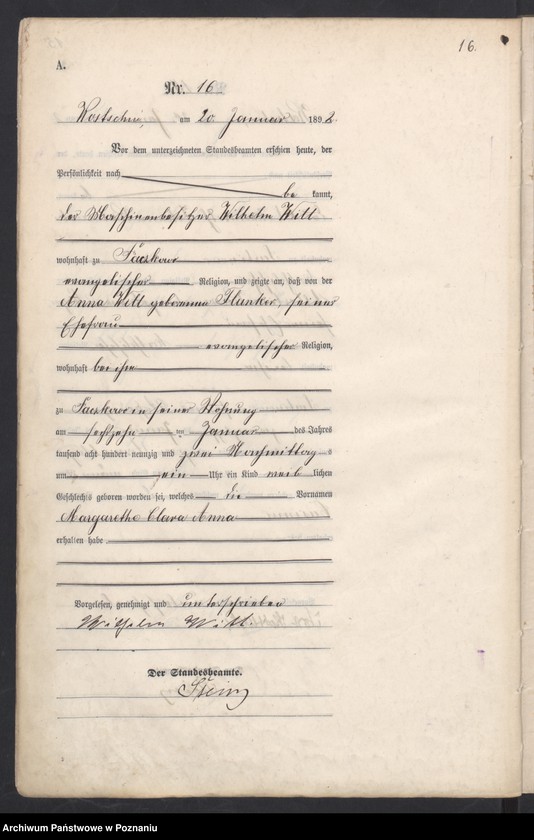 16.
A.
Nr. 16
Kostschin, am 20 Januar 1892.
Vor dem unterzeichneten Standesbeamten erschien heute, der
Persönlichkeit nach
be kannt,
der Maschinenbesitzer Wilhelm Will
wohnhaft zu Saczkowo
evangelischer Religion, und zeigte an, daß von der
Anna Will geborenen Flanker, seiner
Ehefrau
evangelischer Religion,
wohnhaft bei ihm
zu Saczkowo in seiner Wohnung
am sechzehn ten Januar des Jahres
tausend acht hundert neunzig und zwei Nachmittag s
um ein Uhr ein Kind weib lichen
Geschlechts geboren worden sei, welches die Vornamen
Margarethe Clara Anna
erhalten habe
Vorgelesen, genehmigt und unterschrieben
Wilhelm Will
Der Standesbeamte.
Archiwum Państwowe w Poznaniu